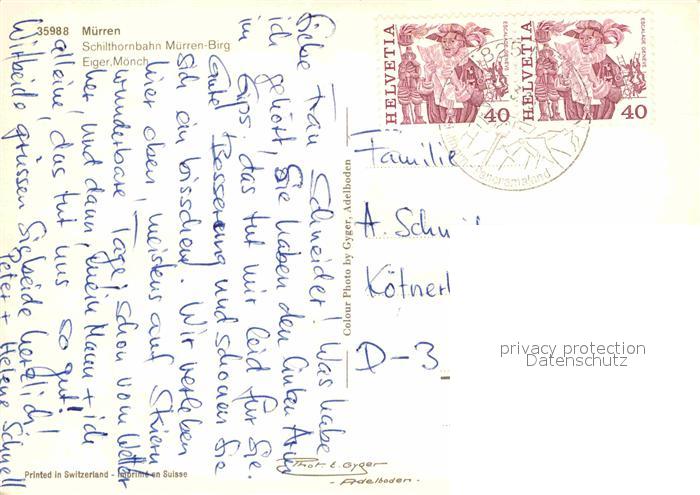 35988 Mürren
Schilthornbahn Mürren-Birg
Eiger, Mönch
Liebe Frau Schneider! Was habe
ich gehört, Sie haben den linken Arm
im Gips, das tut mir leid für Sie.
Gute Besserung und schonen Sie
sich ein bisschen! Wir verleben
hier oben, meistens auf Skiern
wunderbare Tage! Schon vom Wetter
her, und dann, mein Mann + ich
alleine, das tut uns so gut!
Wir beide grüssen Sie beide herzlich!
Peter + Helene Schnell
Printed in Switzerland - Imprimé en Suisse
Colour Photo by Gyger, Adelboden
HELVETIA
ESCALADE GENÈVE
40
HELVETIA
ESCALADE GENÈVE
40
Panoramaland
Familie
A. Schn
Kötnerl
D-3
privacy protection
Datenschutz
Phot. E. Gyger
- Adelboden -